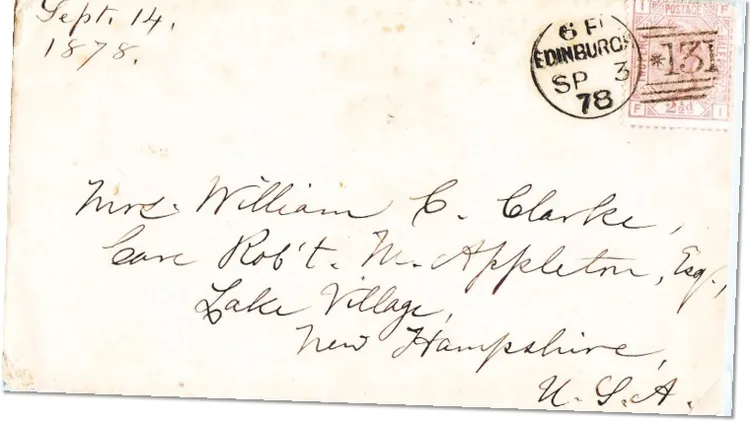 Sept. 14.
1878.
6 F
EDINBURGH
SP 3
78
I POSTAGE F
131
F 2½d I
Mrs. William C. Clarke,
Care Rob't. M. Appleton, Esq.,
Lake Village,
New Hampshire,
U.S.A.